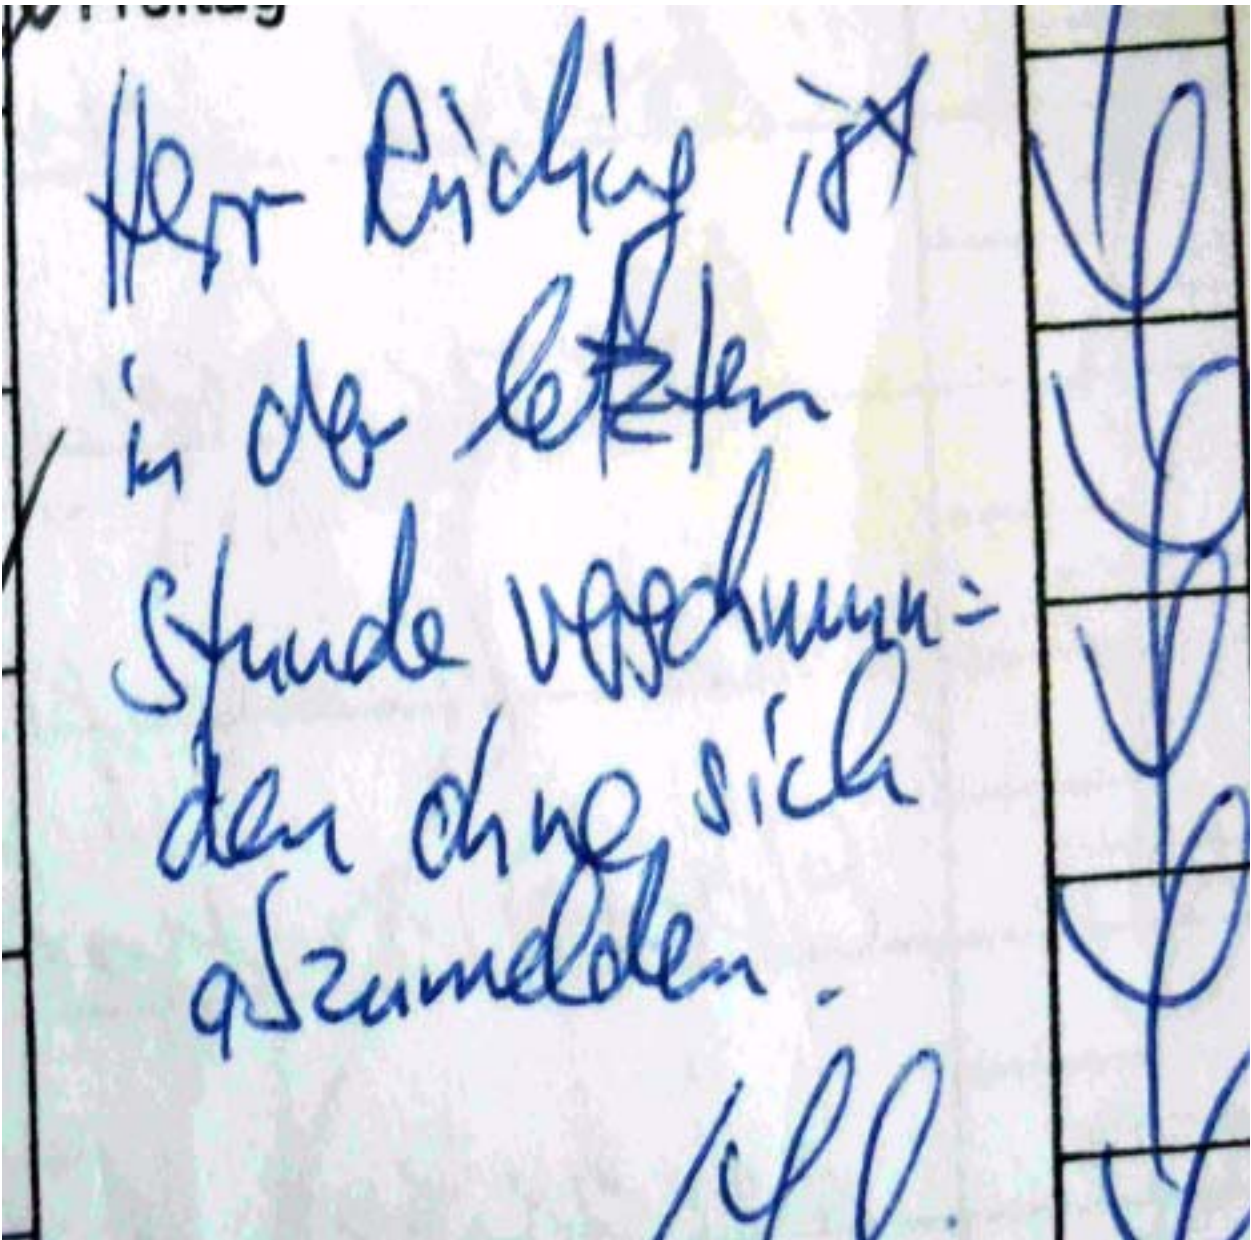 Freitag
Herr Rüching ist
in der letzten
Stunde verschwun=
den ohne sich
abzumelden.